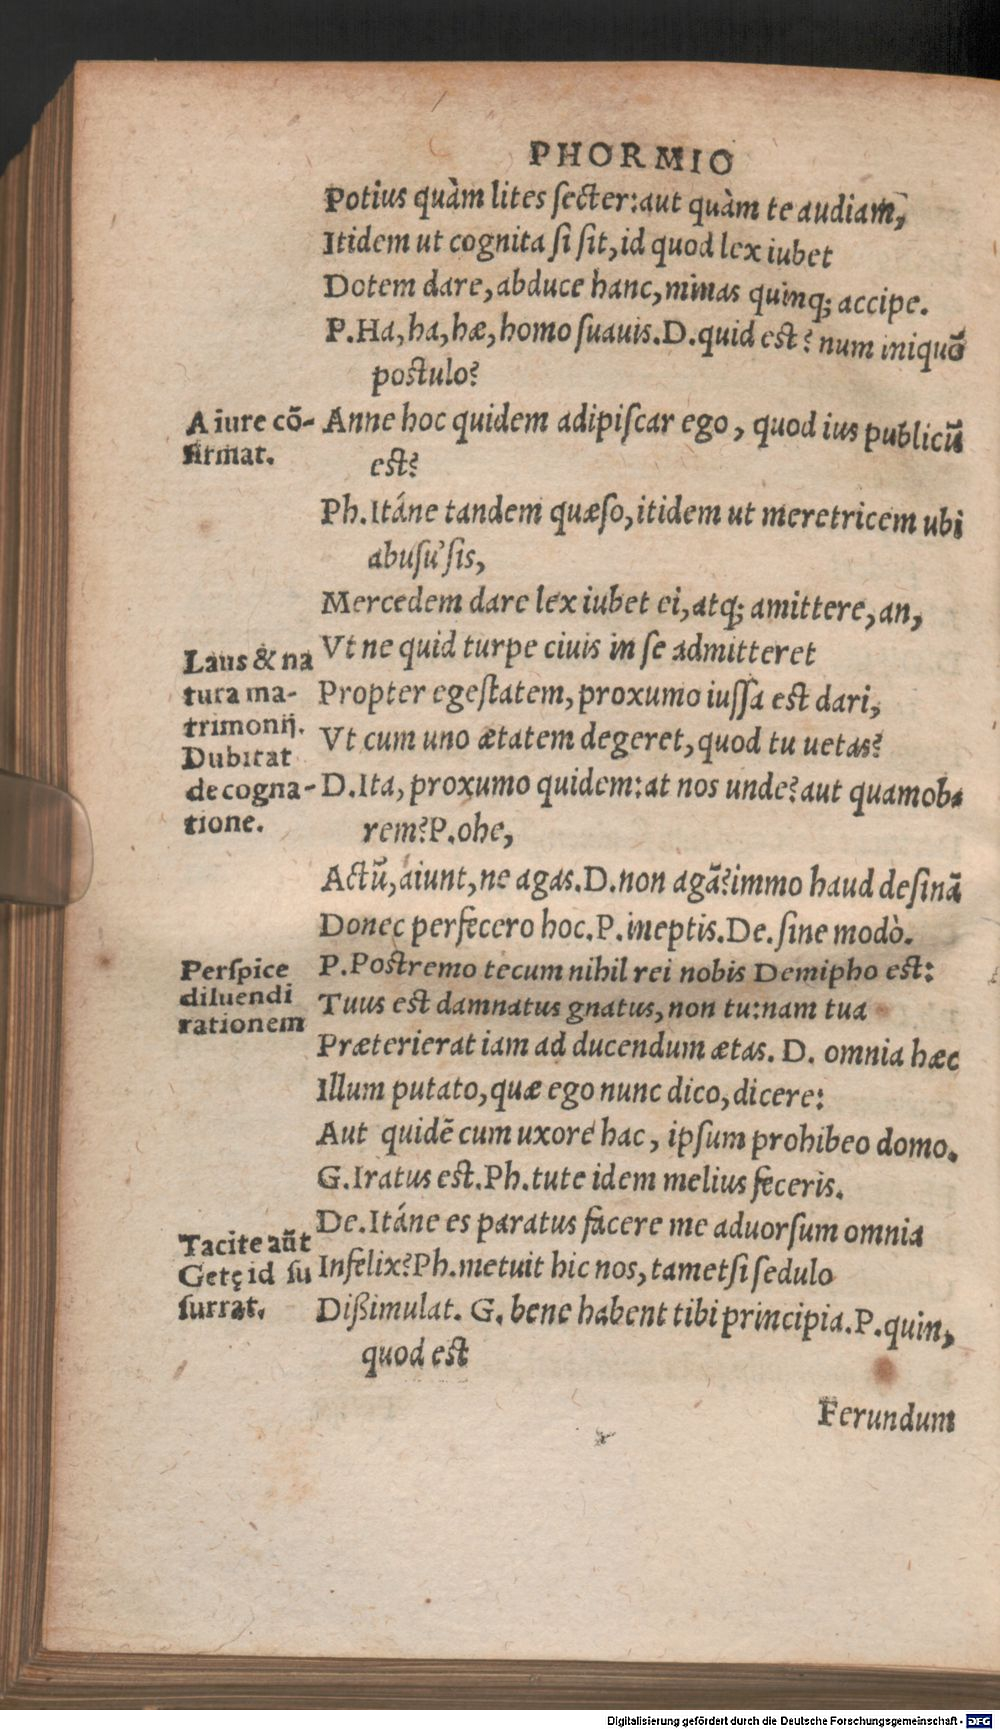 PHORMIO
Potius quàm lites ſecter:aut quàm te audiam,
Itidem ut cognita ſi ſit,id quod lex iubet
Dotem dare,abduce hanc,minas quinq; accipe.
P.Ha,ha,hæ,homo ſuauis.D.quid est? num iniquũ
postulo?
A iure cõ-
firmat.
Anne hoc quidem adipiſcar ego, quod ius publicũ
est?
Ph.Itáne tandem quæſo,itidem ut meretricem ubi
abuſu'ſis,
Mercedem dare lex iubet ei,atq; amittere,an,
Laus & na
tura ma-
trimonij.
Dubitat
de cogna-
tione.
Vt ne quid turpe ciuis in ſe admitteret
Propter egeſtatem,proxumo iuſſa est dari,
Vt cum uno ætatem degeret,quod tu uetas?
D.Ita, proxumo quidem:at nos unde?aut quamob-
rem?P.ohe,
Actũ,aiunt,ne agas.D.non agã?immo haud deſinã
Donec perfecero hoc.P.ineptis.De.ſine modò.
Perſpice
diluendi
rationem
P.Postremo tecum nihil rei nobis Demipho est:
Tuus est damnatus gnatus,non tu:nam tua
Præterierat iam ad ducendum ætas. D. omnia hæc
Illum putato,quæ ego nunc dico,dicere:
Aut quidẽ cum uxore hac, ipſum prohibeo domo.
G.Iratus est.Ph.tute idem melius feceris.
Tacite aũt
Getę id ſu
ſurrat.
De.Itáne es paratus facere me aduorſum omnia
Infelix?Ph.metuit hic nos,tametſi ſedulo
Dißimulat. G. bene habent tibi principia.P.quin,
quod est
Ferundum
Digitalisierung gefördert durch die Deutsche Forschungsgemeinschaft - DFG